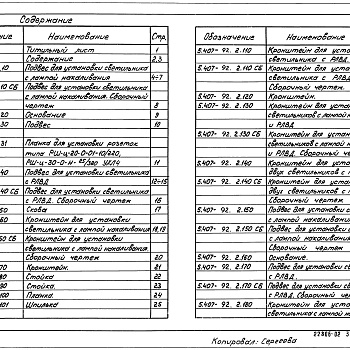 Содержание
ние Наименование Стр.
Титульный лист 1
Содержание 2,3
10 Подвес для установки светильника
с лампой накаливания 4÷7
10 СБ Подвес для установки светильника
с лампой накаливания. Сборочный
чертеж 8
20 Основание 9
30 Подвес 10
31 Планка для установки розеток
типа РШ-ц-20-0-01-10/220,
РШ-ц-30-0-Н-25/380 УХЛ4 11
40 Подвес для установки светильника
с РЛВД 12÷15
40 СБ Подвес для установки светильника
с РЛВД. Сборочный чертеж 16
50 Скоба 17
60 Кронштейн для установки
светильника с лампой накаливания 18,19
60 СБ Кронштейн для установки
светильника с лампой накаливания.
Сборочный чертеж 20
70 Кронштейн. 21
80 Стойка 22
90 Стойка. 23
100 Планка. 24
101 Шпилька. 25
Обозначение Наименование
5.407-92. 2.110 Кронштейн для уста
светильника с РЛВД.
5.407-92. 2.110 СБ Кронштейн для уста
светильника с РЛВД
Сборочный чертеж.
5.407-92. 2.120 Кронштейн.
5.407-92. 2.130 Кронштейн для установ
светильников с лампой н
и РЛВД
5.407-92. 2.130 СБ Кронштейн для установ
светильников с лампой н
и РЛВД. Сборочный чер
5.407-92. 2.140 Кронштейн для установ
двух светильников с
5.407-92. 2.140 СБ Кронштейн для установ
двух светильников с
Сборочный чертеж.
5.407-92. 2.150 Подвес для установки
светильника с лампой н
5.407-92. 2.150 СБ Подвес для установки
светильника с лампой н
Сборочный чертеж
5.407-92. 2.160 Основание.
5.407-92. 2.170 Подвес для установки
с РЛВД
5.407-92. 2.170 СБ Подвес для установки
с РЛВД. Сборочный
5.407-92. 2.180 Кронштейн для установ
светильника с лампой н
22806-02 3
Копировал: Сересова